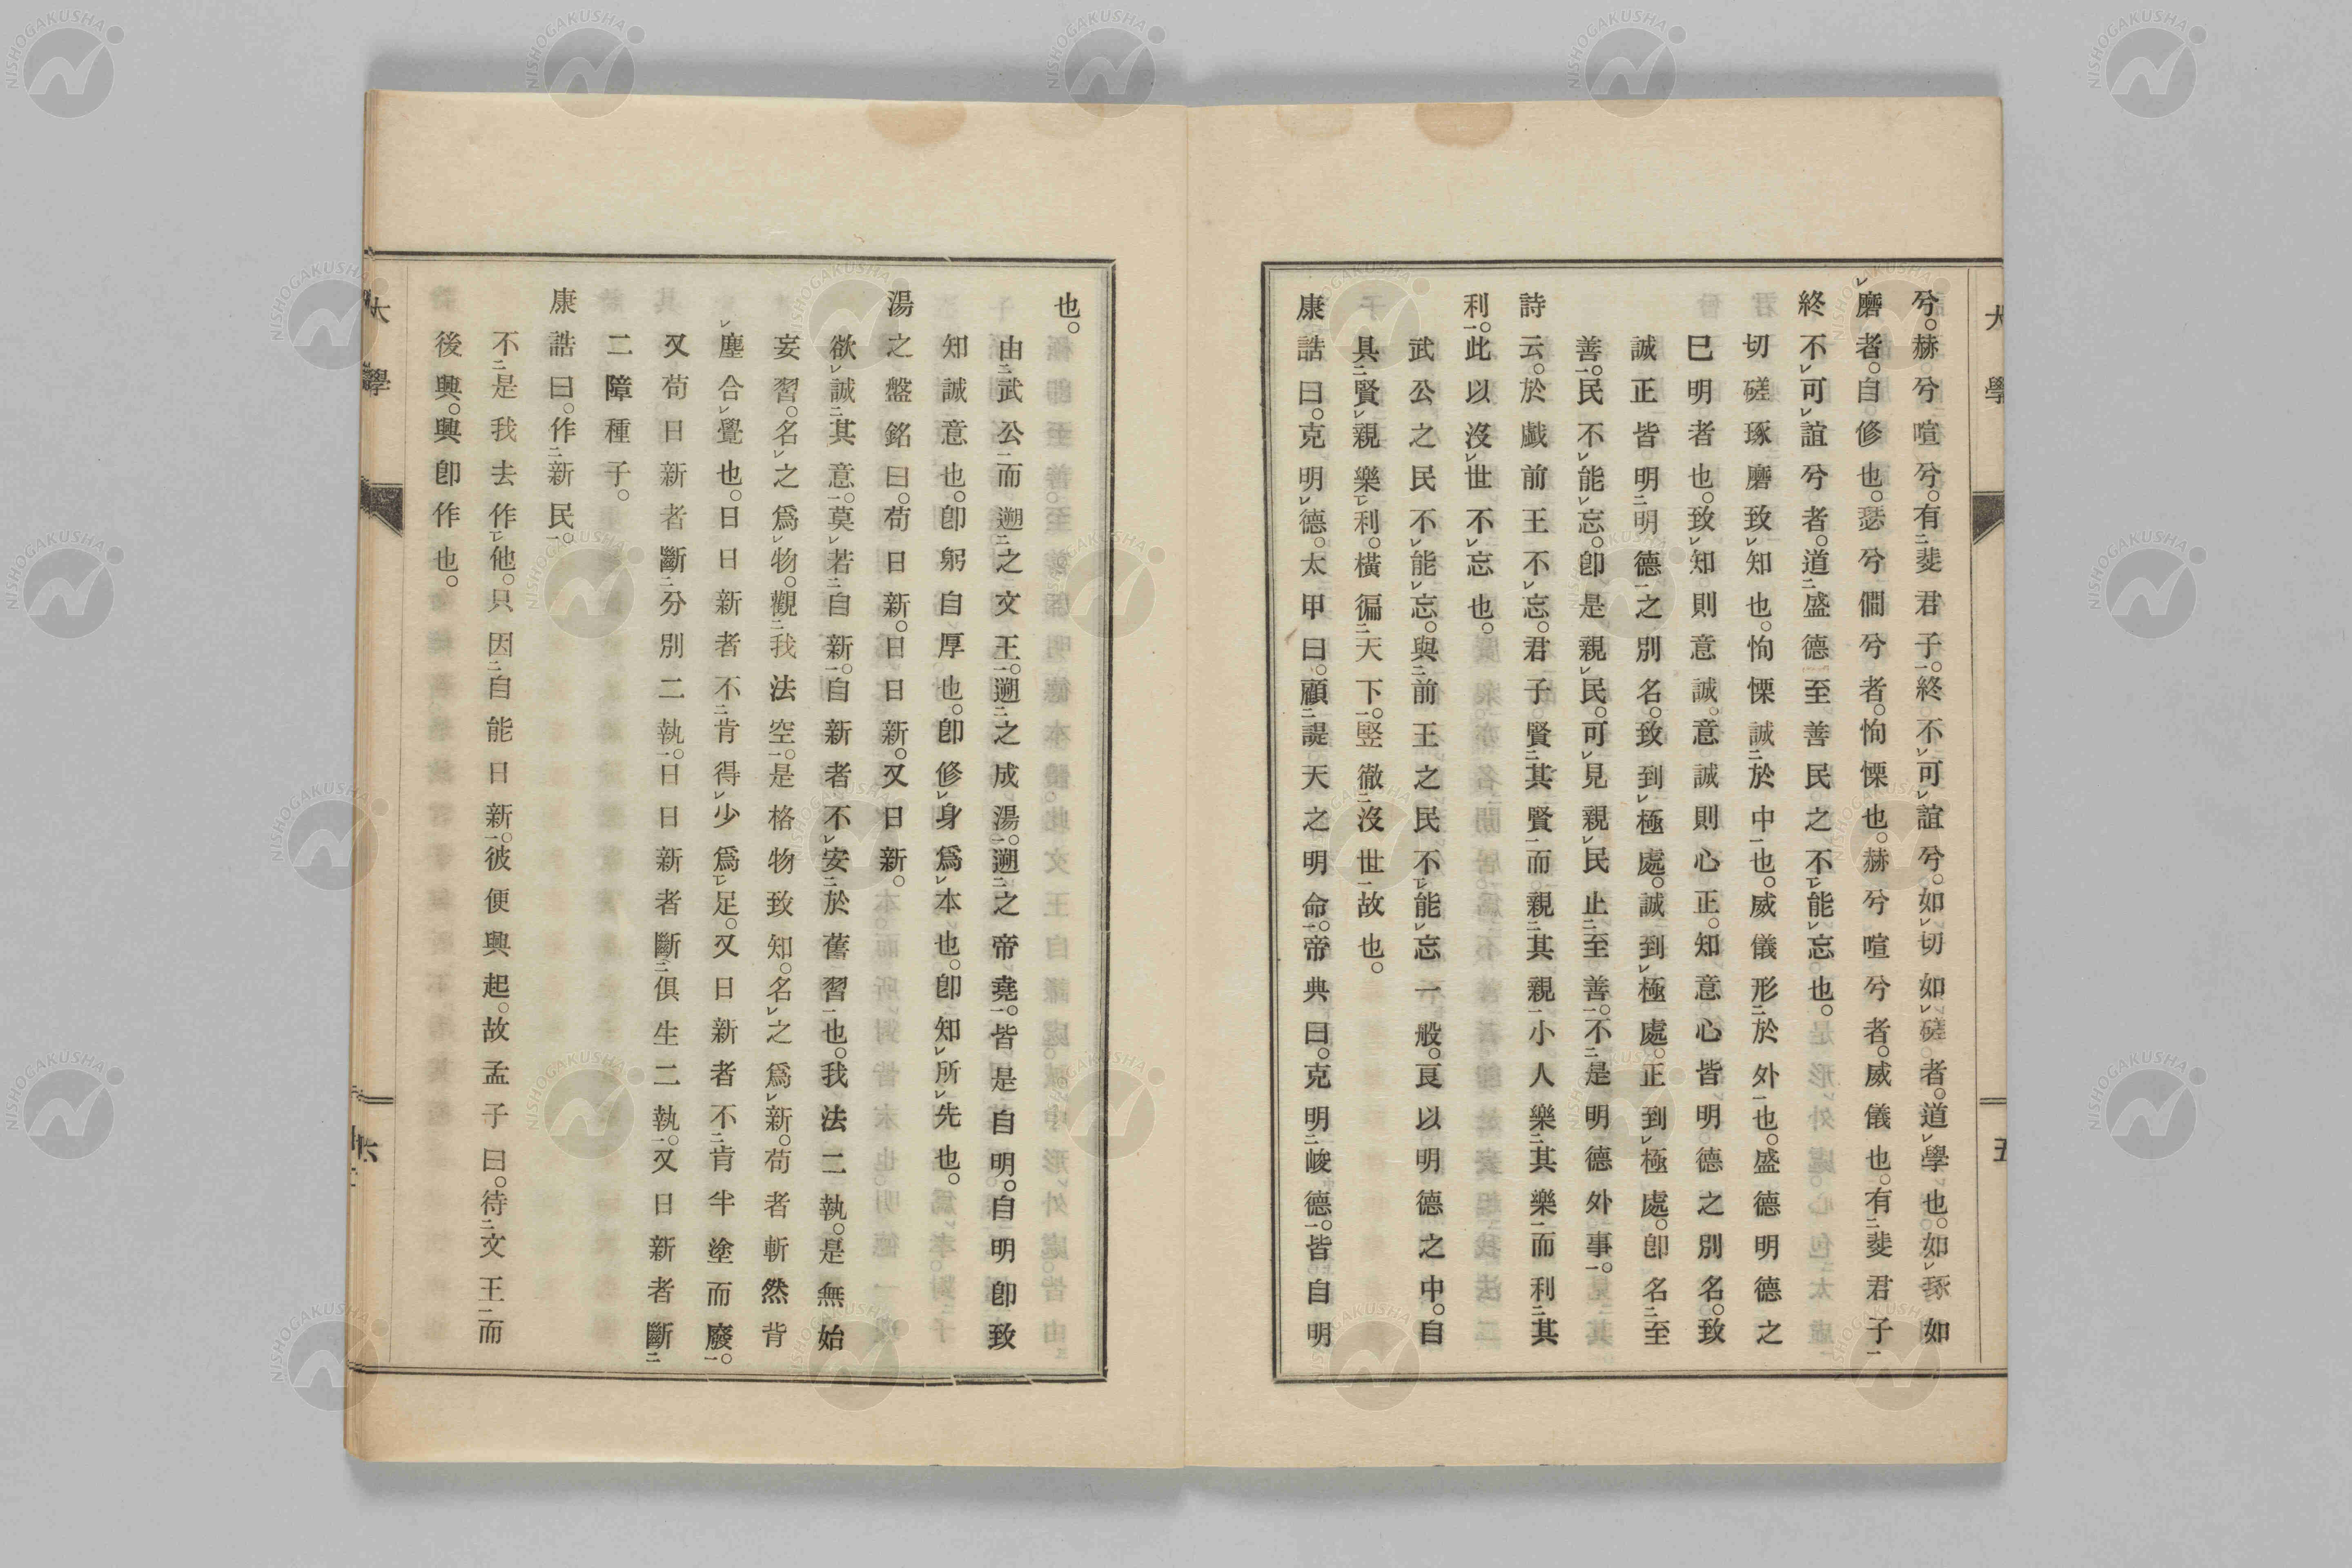 大學
五
兮。赫兮喧兮。有斐君子。終不可諠兮。如切如磋者。道學也。如琢如
磨者。自修也。瑟兮僩兮者。恂慄也。赫兮喧兮者。威儀也。有斐君子
終不可諠兮者。道盛德至善民之不能忘也。
切磋琢磨致知也。恂慄誠於中也。威儀形於外也。盛德明德之
巳明者也。致知則意誠。意誠則心正。知意心皆明德之別名。致
誠正皆明明德之別名。致到極處。誠到極處。正到極處。卽名至
善。民不能忘。卽是親民。可見親民止至善。不是明德外事。
詩云。於戲前王不忘。君子賢其賢而親其親小人樂其樂而利其
利。此以沒世不忘也。
武公之民不能忘。與前王之民不能忘一般。良以明德之中。自
具賢親樂利。橫徧天下。竪徹沒世故也。
康誥曰。克明德。太甲曰。顧諟天之明命。帝典曰。克明峻德。皆自明
也。
由武公而遡之文王。遡之成湯。遡之帝堯。皆是自明。自明卽致
知誠意也。卽躬自厚也。卽修身爲本也。卽知所先也。
湯之盤銘曰。苟日新。日日新。又日新。
欲誠其意。莫若自新。自新者不安於舊習也。我法二執。是無始
妄習。名之爲物。觀我法空。是格物致知。名之爲新。苟者斬然背
塵合覺也。日日新者不肯得少爲足。又日新者不肯半塗而廢。
又苟日新者斷分別二執。日日新者斷俱生二執。又日新者斷
二障種子。
康誥曰。作新民。
不是我去作他。只因自能日新。彼便興起。故孟子曰。待文王而
後興。興卽作也。
大學
六